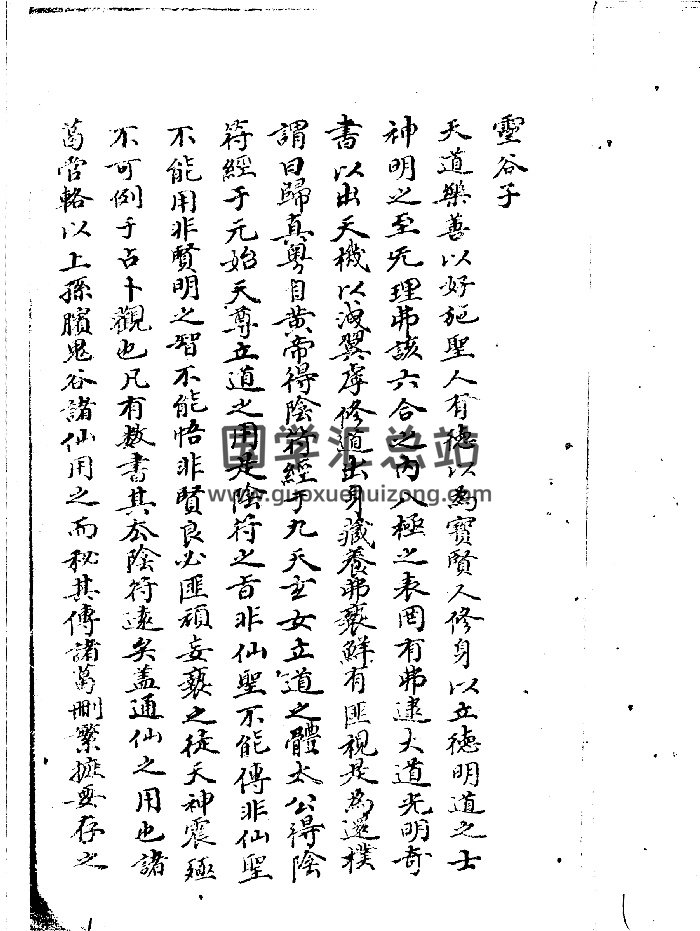 靈谷子
天道樂善以好施聖人有德以為寶賢人修身以立德明道之士
神明之至旡理弗該六合之內八極之表罔有弗逮大道光明奇
書以出天機以洩翼虔修道出身藏養弗褻鮮有匪視是為還樸
謂曰歸真粵自黄帝得陰符經于九天玄女立道之體太公得陰
符經于元始天尊立道之用是陰符之旨非仙聖不能傳非仙聖
不能用非賢明之智不能悟非賢良必匪頑妄褻之徒天神震殛
不可例于占卜觀也凡有数書其於陰符遠矣盖通仙之用也諸
葛管輅以上孫臏鬼谷諸仙用之而秘其傳諸葛刪繁摭要存之
国学汇总站
www.guoxuehuizong.com